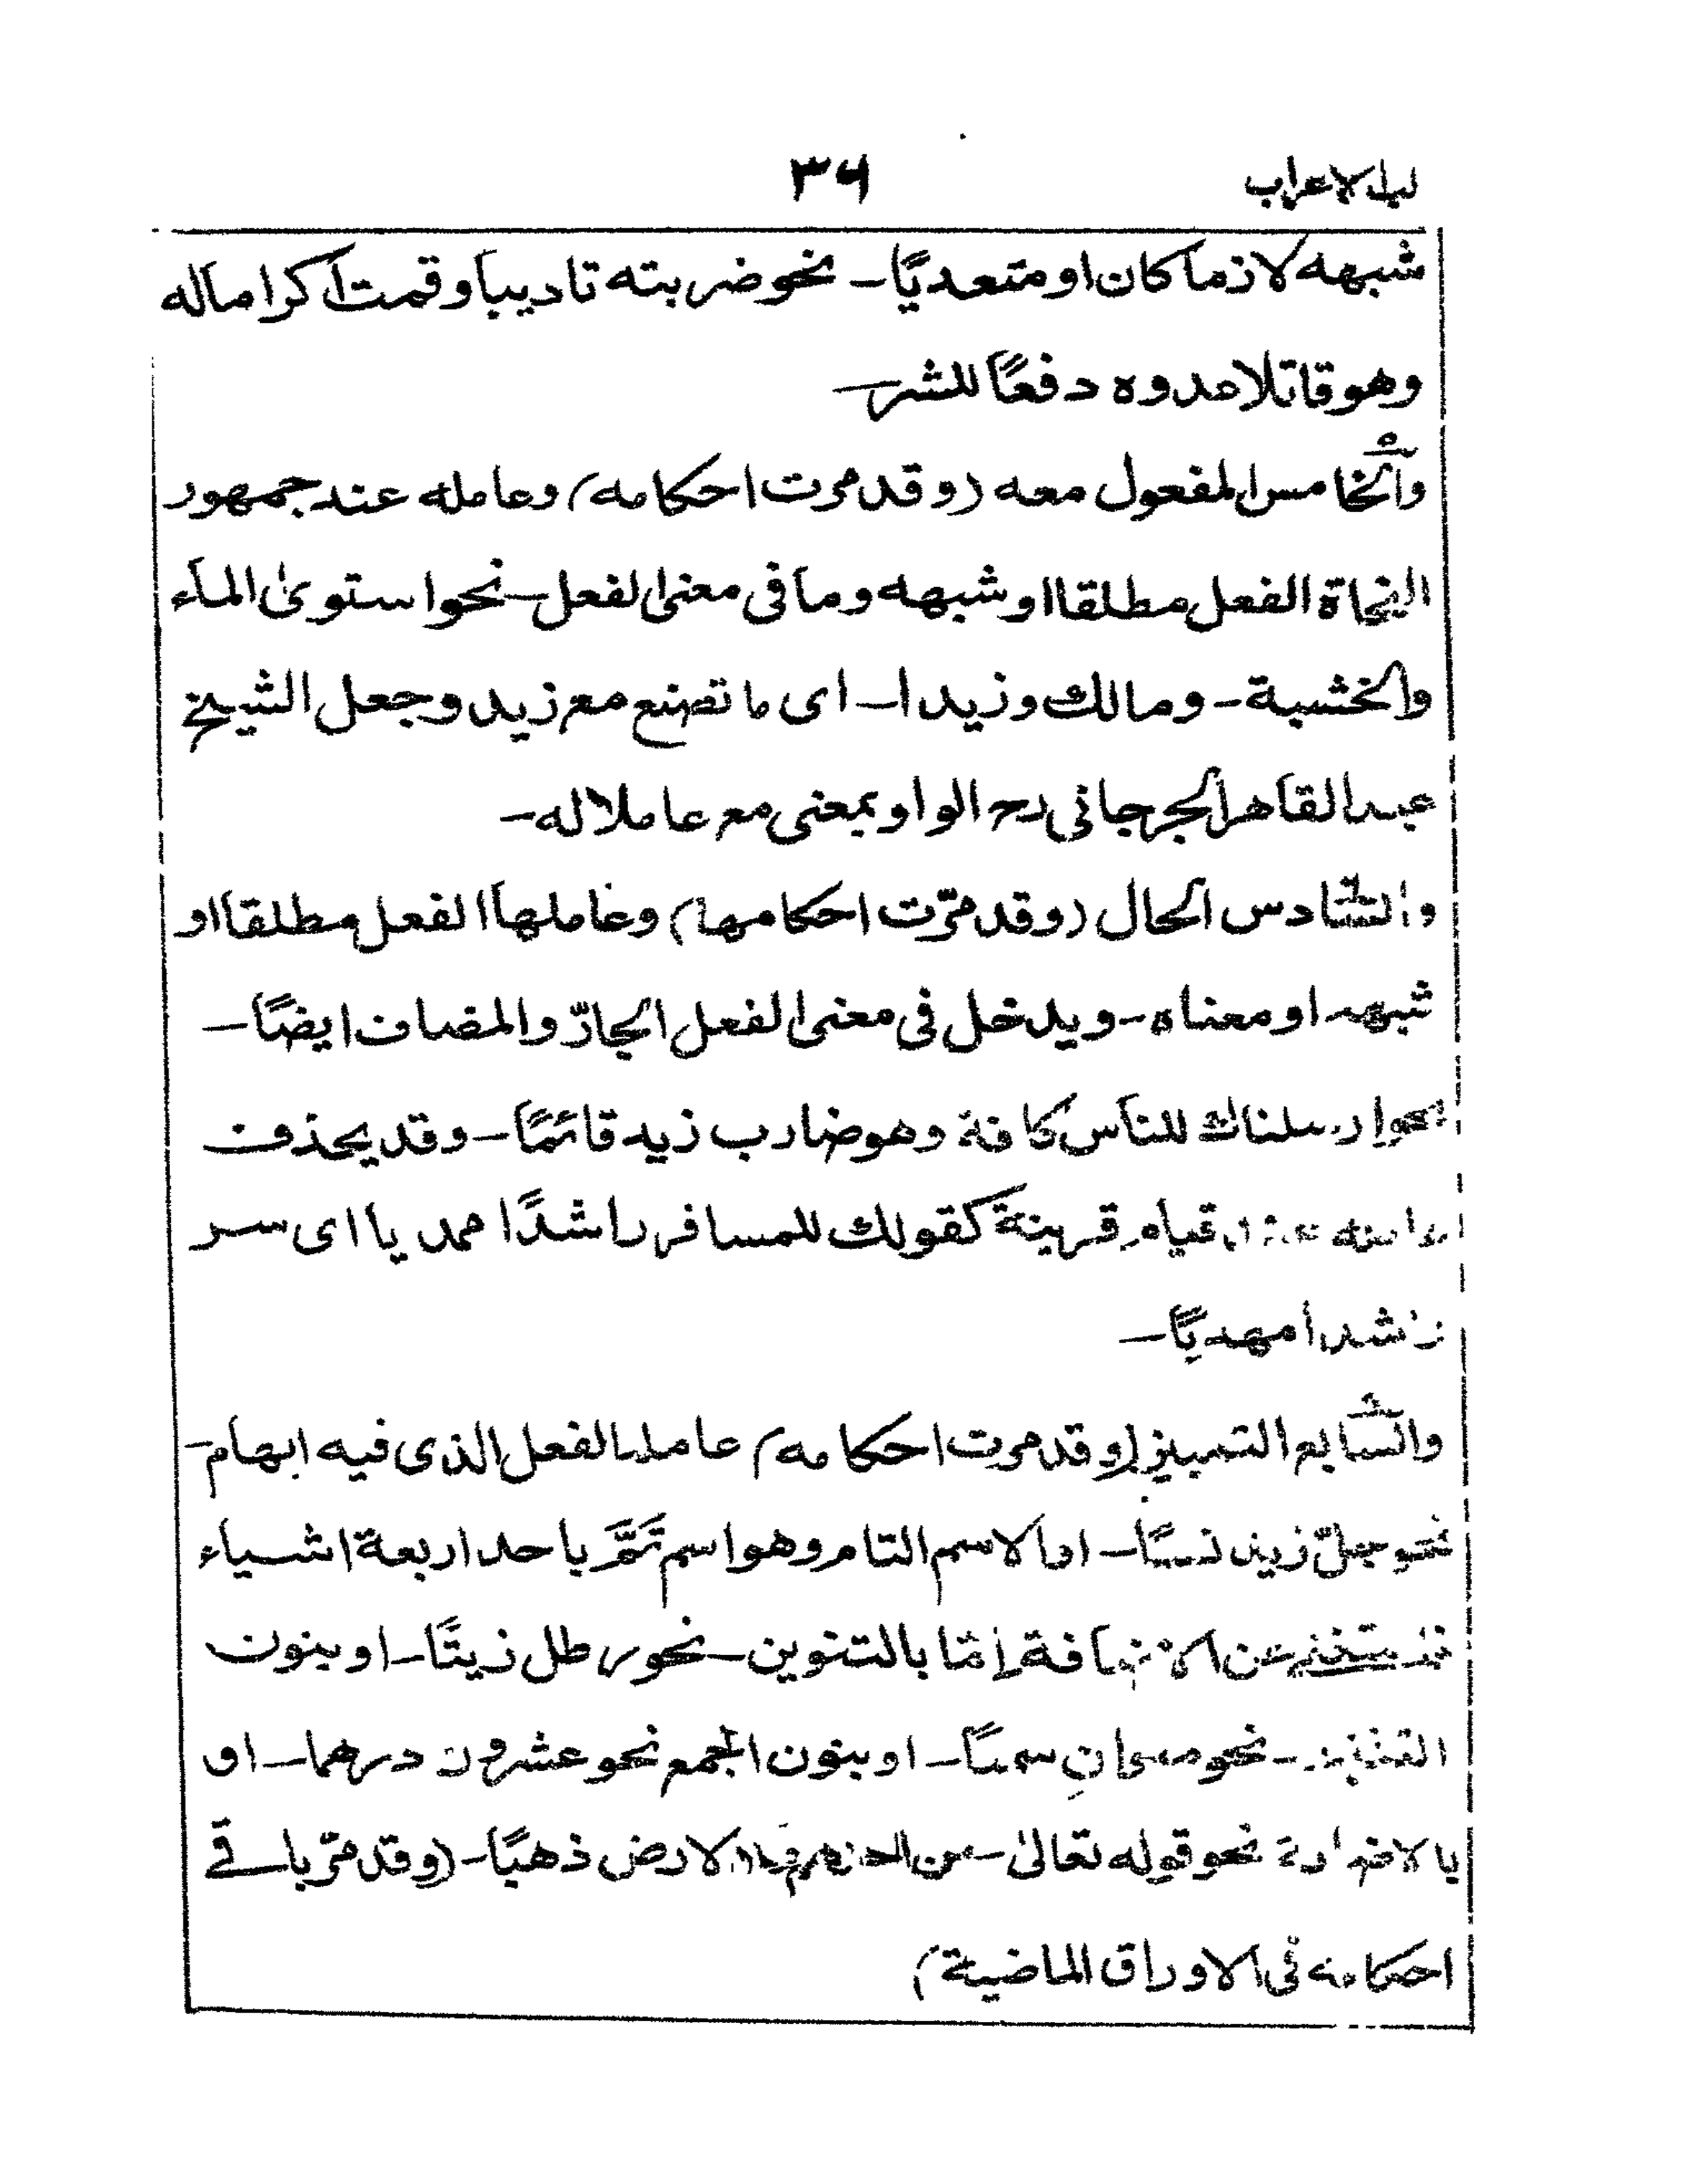 لب الاعراب
۳۶
شبهه لازما كان او متعديًا - نحو ضربته تاديبا وقمت اكراما له
وهو قاتل لاعدوه دفعًا للشر -
والخامس المفعول معه (وقد مرت احكامه) وعامله عند جمهور
النحاة الفعل مطلقا او شبهه وما فى معنى الفعل - نحو استوىٰ الماء
والخشبة - ومالك وزيدا - اى ما تصنع مع زيد وجعل الشيخ
عبد القاهر الجرجانى رح الواو بمعنى مع عاملا له -
والسّادس الحال (وقد مرّت احكامها) وعاملها الفعل مطلقا او
شبهه او معناه - ويدخل فى معنى الفعل الجارّ والمضاف ايضًا -
نحو ارسلناك للناس كافة وهو ضارب زيد قائمًا - وقد يحذف
عامله قيام قرينة كقولك للمسافر راشدًا مهديا اى سر
راشدا مهديًا -
والسّابع التمييز (وقد مرت احكامه) عامله الفعل الذى فيه ابهام -
نحو زيد نفسًا - اما الاسم التام وهو اسم تَمَّ باحد اربعة اشياء
عن الاضافة اِمّا بالتنوين - نحو رطل زيتًا - او بنون
التثنية - نحو منوانِ سمنًا - او بنون الجمع نحو عشرون درهما - او
بالاضافة نحو قوله تعالىٰ - من احدهم ملأ الارض ذهبًا - (وقد مرّ باقى
احكامه فى الاوراق الماضية)